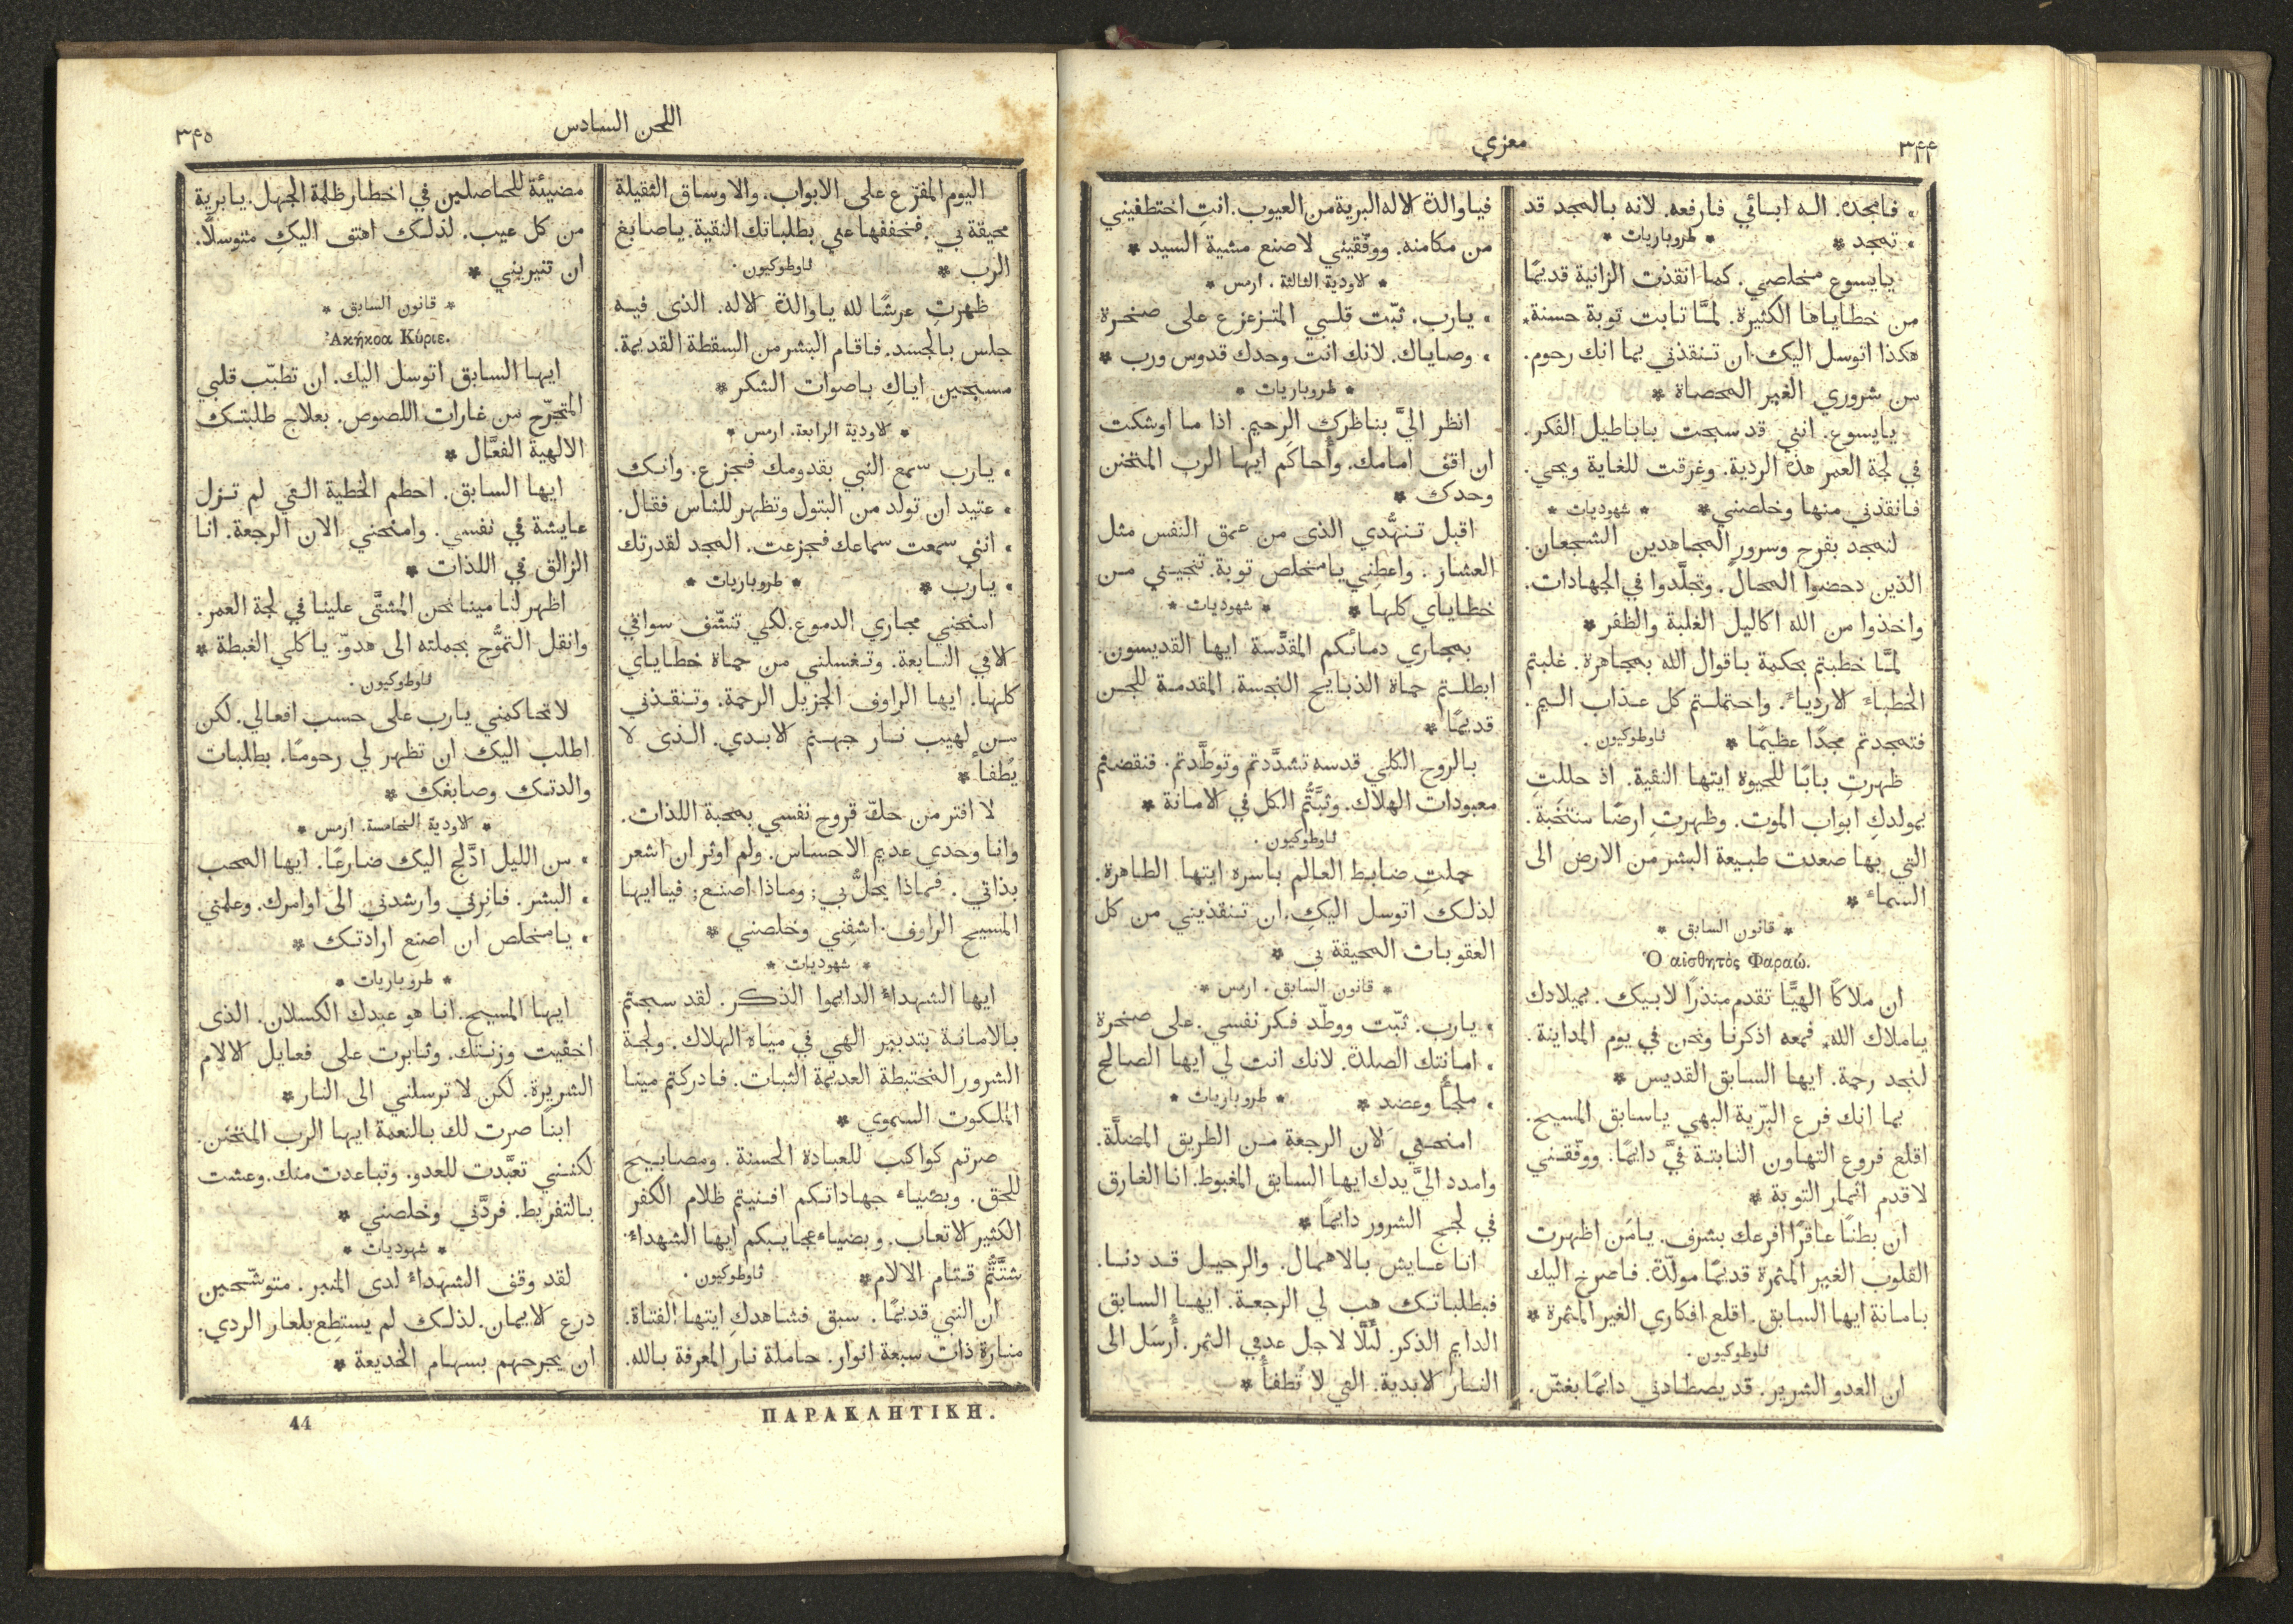 ٣۴۴
معزي
، فامجده. اله ابائي فارفعه. لانه بالمجد قد
، تمجد * * طروباريات *
يايسوع مخلصي. كما انقذت الزانية قديمًا
من خطاياها الكثيرة. لمَّا تابت توبة حسنة*
هكذا اتوسل اليك. ان تنقذني بما انك رحوم.
من شروري الغير المحصاة *
يايسوع. انني قد سبحت باباطيل الفكر.
في لجة العمر هذه الردية. وغرقت للغاية ويحي.
فانقذني منها وخلصني * * شهوديات *
لنمجد بفرح وسرور المجاهدين الشجعان.
الذين دحضوا المحال. وتجلَّدوا في الجهادات.
واخذوا من الله اكاليل الغلبة والظفر *
لمَّا خطبتم بحكمة باقوال الله بمجاهرة. غلبتم
الخطباءَ الاردياءَ. واحتملتم كل عذاب اليم.
فتمجدتم مجدًا عظيمًا * ثاوطوكيون.
ظهرتِ بابًا للحيوة ايتها النقية. اذ حللتِ
بمولدكِ ابواب الموت. وظهرتِ ارضًا منتخَبة.
التي بها صعدت طبيعة البشر من الارض الى
السماءَ *
* قانون السابق *
Ὁ αἰσθητὸς Φαραώ.
ان ملاكًا الهيًّا تقدم منذرًا لابيك. بميلادك
ياملاك الله. فمعه اذكرنا ونحن في يوم المداينة.
لنجد رحمة. ايها السابق القديس *
بما انك فرع البرّية البهي ياسابق المسيح.
اقلع فروع التهاون النابتة فيَّ دايمًا. ووفّقني
لاقدم اثمار التوبة *
ان بطنًا عاقرًا افرعك بشرف. يامَن اظهرت
القلوب الغير المثمرة قديمًا مولّدة. فاصرخ اليك
بامانة ايها السابق. اقلع افكاري الغير المثمرة *
ثاوطوكيون.
ان العدو الشرير. قد يصطادني دايمًا بغشّ.
فياوالدة الاله البرية من العيوب. انتِ اختطفيني
من مكامنه. ووفّقيني لاصنع مشية السيد *
* الاودية الثالثة. ارمس *
، يارب. ثبّت قلبي المتزعزع على صخرة
، وصاياك. لانك انت وحدك قدوس ورب *
* طروباريات *
انظر اليَّ بناظرك الرحيم. اذا ما اوشكت
ان اقف امامك. وأُحاكَم ايها الرب المتحنن
وحدك *
اقبل تنهُّدي الذى من عمق النفس مثل
العشار. واعطِني يامخلص توبة. تنجيني من
خطاياي كلها * * شهوديات *
بمجاري دمائكم المقدَّسة ايها القديسون.
ابطلتم حماة الذبايح النجسة. المقدمة للجن
قديمًا *
بالروح الكلي قدسه تشدَّدتم وتوطَّدتم. فنقضتم
معبودات الهلاك. وثبَّتُّم الكل في الامانة *
ثاوطوكيون.
حملتِ ضابط العالم باسره ايتها الطاهرة.
لذلك اتوسل اليكِ. ان تنقذيني من كل
العقوبات المحيقة بي *
* قانون السابق. ارمس *
، يارب. ثبّت ووطّد فكر نفسي. على صخرة
، امانتك الصلدة. لانك انت لي ايها الصالح
، ملجأٌ وعضد * * طروباريات *
امنحني الان الرجعة من الطريق المضلَّة.
وامدد اليَّ يدك ايها السابق المغبوط. انا الغارق
في لجج الشرور دايمًا *
انا عايش بالاهمال. والرحيل قد دنا.
فبطلباتك هب لي الرجعة. ايها السابق
الدايم الذكر. لئلَّا لاجل عدمي الثمر. أُرسَل الى
النار الابدية. التي لا تُطفأُ *
اللحن السادس
٣۴٥
اليوم المفزع على الابواب. والاوساق الثقيلة
محيقة بي. فخففها عني بطلباتك النقية. ياصابغ
الرب * ثاوطوكيون.
ظهرتِ عرشًا لله ياوالدة الاله. الذى فيه
جلس بالجسد. فاقام البشر من السقطة القديمة.
مسبحين اياكِ باصوات الشكر *
* الاودية الرابعة. ارمس *
، يارب سمع النبي بقدومك فجزع. وانك
، عتيد ان تولد من البتول وتظهر للناس فقال.
، انني سمعت سماعك فجزعت. المجد لقدرتك
، يارب * * طروباريات *
امنحني مجاري الدموع. لكي تنشّف سواقي
الافي النابعة. وتغسلني من حماة خطاياي
كلها. ايها الراوف الجزيل الرحمة. وتنقذني
من لهيب نار جهنم الابدي. الذى لا
يُطفأُ *
لا افتر من حكّ قروح نفسي بمحبة اللذات.
وانا وحدي عديم الاحساس. ولم اوثر ان اشعر
بذاتي. فماذا يحلُّ بي; وماذا اصنع; فياايها
المسيح الراوف. اشفِني وخلصني *
* شهوديات *
ايها الشهداءُ الدايموا الذكر. لقد سبحتم
بالامانة بتدبير الهي في مياه الهلاك. ولجة
الشرور المختبطة العديمة الثبات. فادركتم مينا
الملكوت السموي *
صرتم كواكب للعبادة الحسنة. ومصابيح
للحق. وبضياء جهاداتكم افنيتم ظلام الكفر
الكثير الاتعاب. وبضياء عجايبكم ايها الشهداءُ.
شتَّتُّم قتام الالام * ثاوطوكيون.
ان النبي قديمًا. سبق فشاهدكِ ايتها الفتاة.
منارة ذات سبعة انوار. حاملة نار المعرفة بالله.
مضيئة للحاصلين في اخطار ظلمة الجهل. يابرية
من كل عيب. لذلك اهتف اليكِ متوسلًا.
ان تنيريني *
* قانون السابق *
Ἀκήκοα Κύριε.
ايها السابق اتوسل اليك. ان تطبّب قلبي
المتجرّح من غارات اللصوص. بعلاج طلبتك
الالهية الفعَّال *
ايها السابق. احطم الخطية التي لم تزل
عايشة في نفسي. وامنحني الان الرجعة. انا
الزالق في اللذات *
اظهر لنا مينا نحن المشتَّى علينا في لجة العمر.
وانقل التموُّج بجملته الى هدوّ. ياكلي الغبطة *
ثاوطوكيون.
لاتحاكمني يارب على حسب افعالي. لكن
اطلب اليك. ان تظهر لي رحومًا. بطلبات
والدتك وصابغك *
* الاودية الخامسة. ارمس *
، من الليل ادَّلج اليك ضارعًا. ايها المحب
، البشر. فانِرني وارشدني الى اوامرك. وعلمني
، يامخلص ان اصنع ارادتك *
* طروباريات *
ايها المسيح. انا هو عبدك الكسلان. الذى
اخفيت وزنتك. وثابرت على فعايل الالام
الشريرة. لكن لا ترسلني الى النار *
ابنًا صرت لك بالنعمة ايها الرب المتحنن.
لكنني تعبَّدت للعدو. وتباعدت منك. وعشت
بالتفريط. فردَّني وخلصني *
* شهوديات *
لقد وقف الشهداءُ لدى المنبر. متوشّحين
درع الايمان. لذلك لم يستطِع بلعار الردي.
ان يجرحهم بسهام الخديعة *
ΠΑΡΑΚΛΗΤΙΚΗ.
44